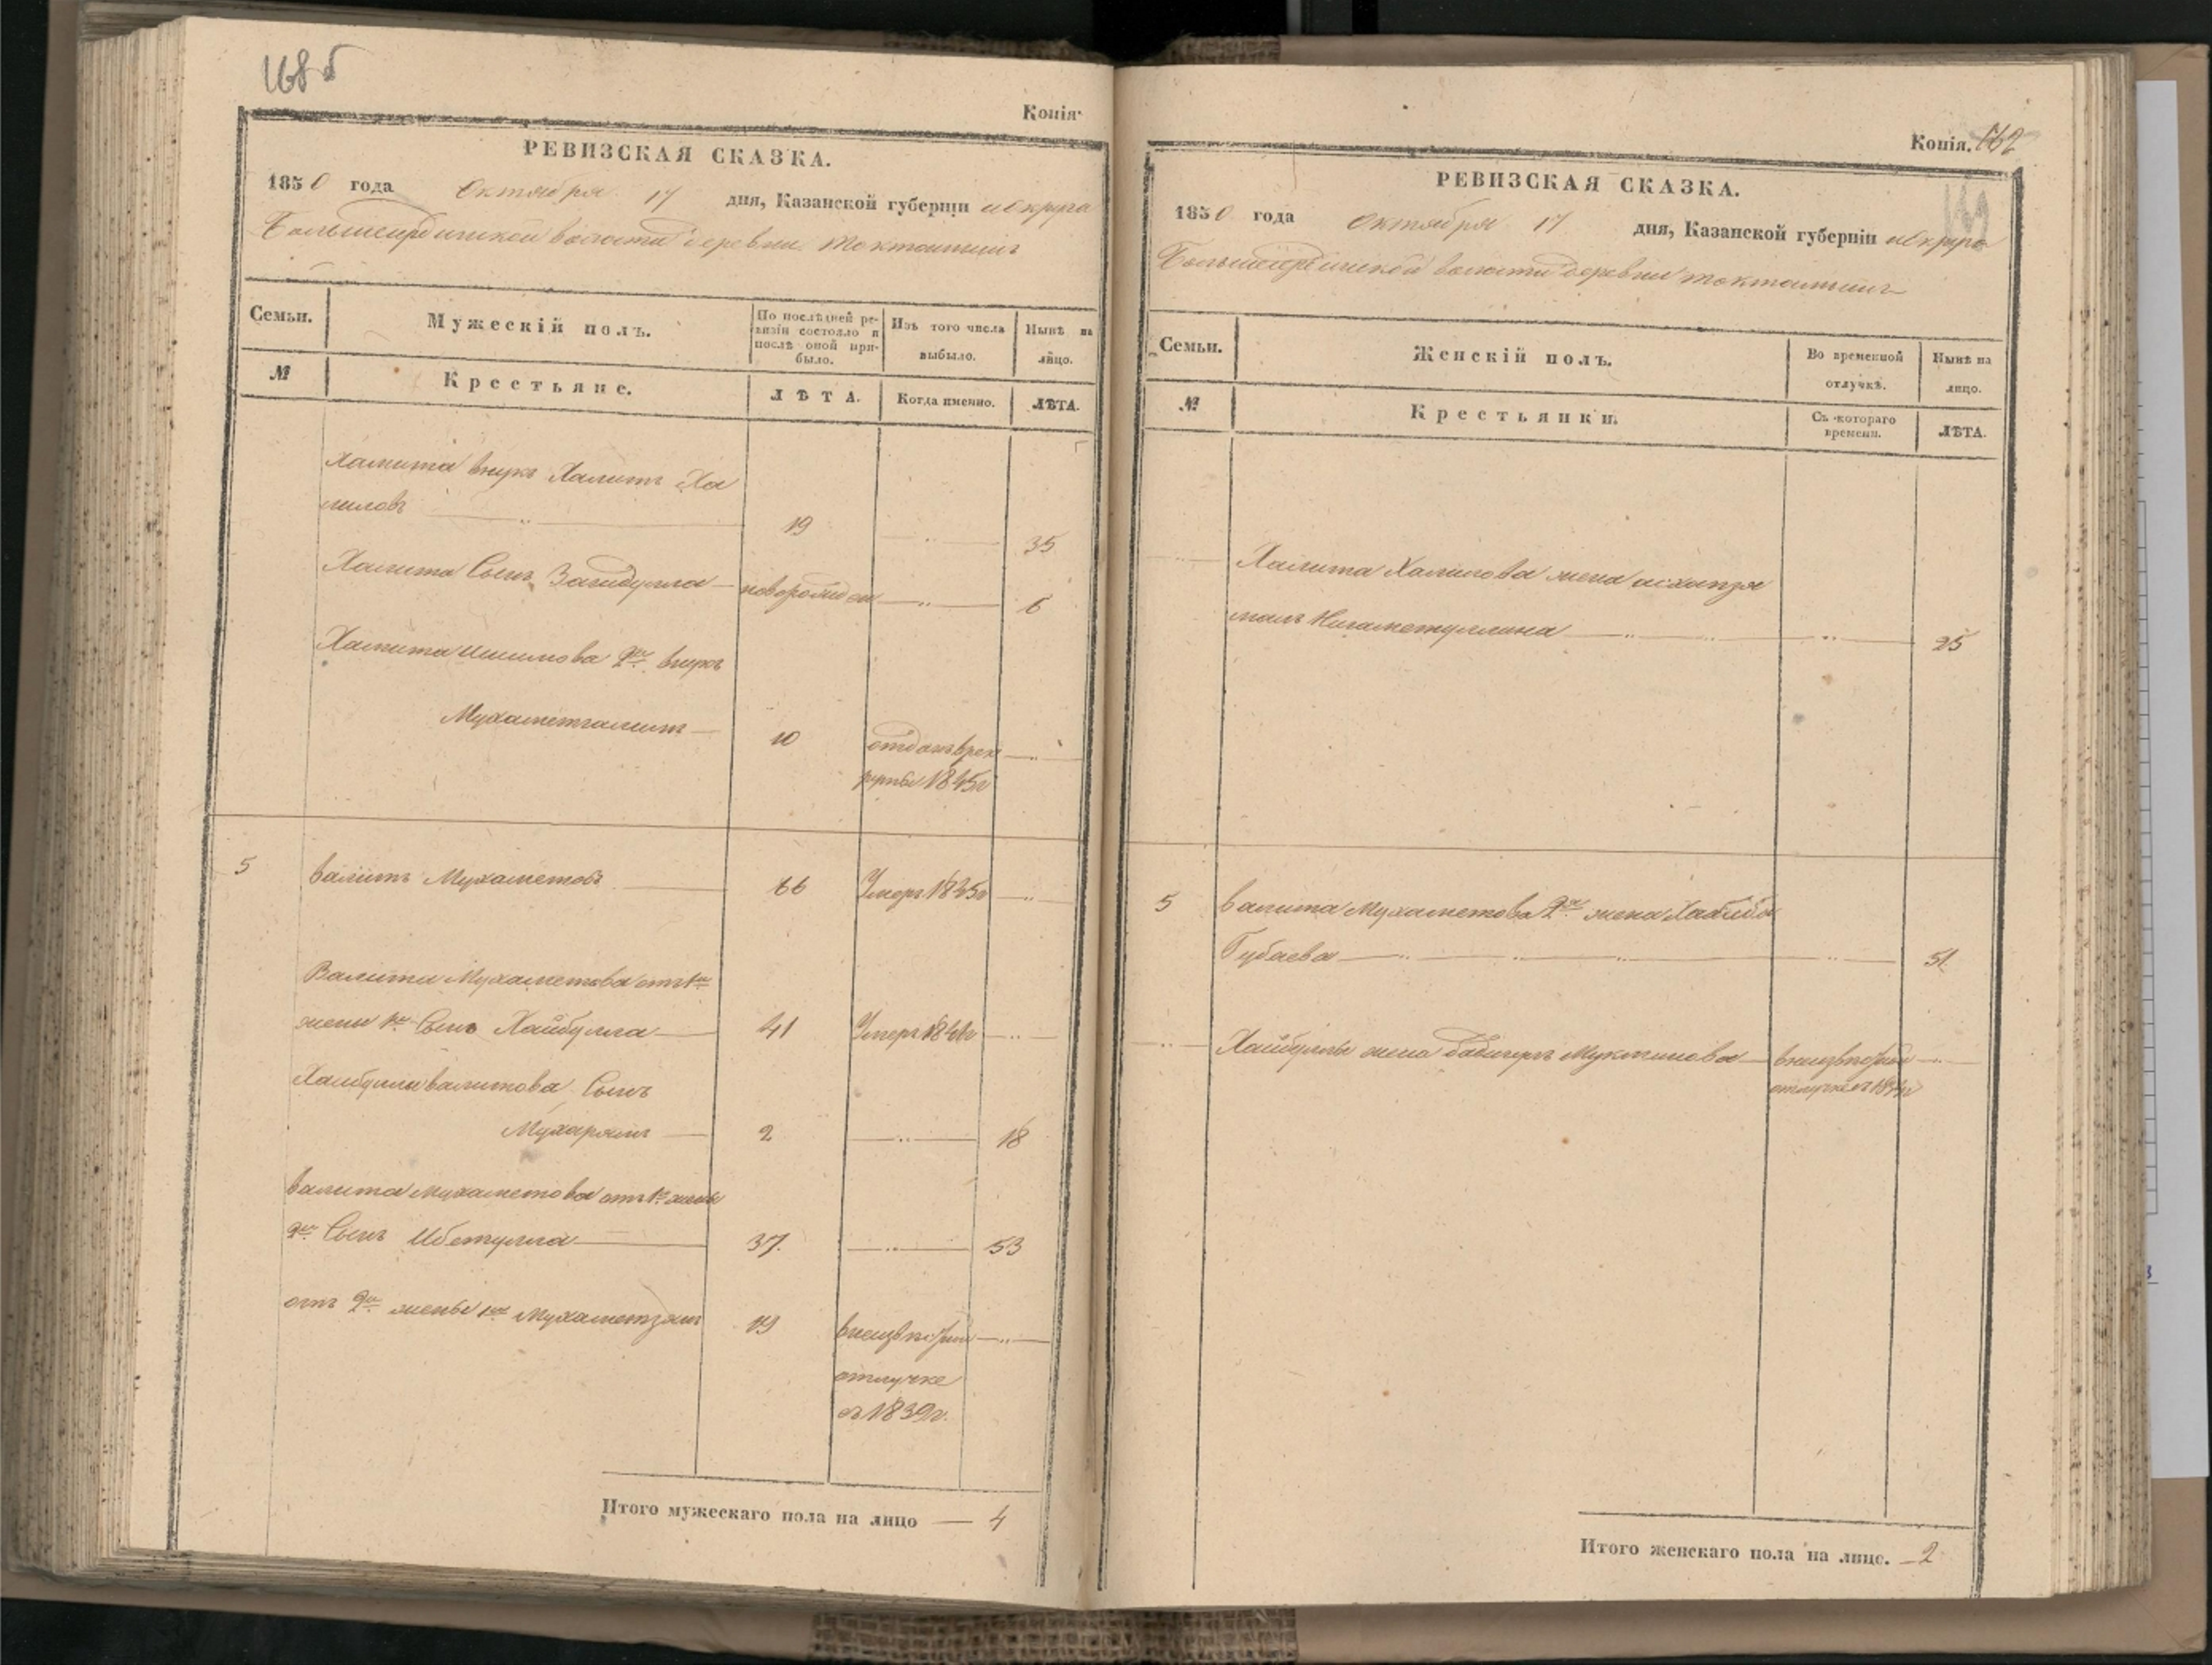 168 б
Копія.
РЕВИЗСКАЯ СКАЗКА.
1850 года Октября 17 дня, Казанской губерніи округа
волости деревни Токтамышъ
Семьи.
Мужескій полъ.
По послѣдней ревизіи состояло и послѣ оной прибыло.
Изъ того числа выбыло.
Нынѣ на лицо.
№
Крестьяне.
ЛѢТА.
Когда именно.
ЛѢТА.
Халита внукъ Халитъ Ха
лиловъ 19 35
Халита Сынъ Загидулла новорожден 6
Халита 2й внукъ
Мухаметгалимъ 10 отданъ врек
руты 1845г
5 Валитъ Мухаметовъ 66 Умеръ 1845г
Валита Мухаметова отъ 1й
жены 1й Сынъ Хайбулла 41 Умеръ 1841г
Хайбуллы Валитова Сынъ
Мухарямъ 2 18
Валита Мухаметова отъ 1й жены
2й Сынъ Ибетулла 37. 53
отъ 2й жены 1й Мухаметзянъ 19
отлучке
съ 1839г.
Итого мужескаго пола на лицо — 4
Копія. 162
РЕВИЗСКАЯ СКАЗКА.
1850 года Октября 17 дня, Казанской губерніи округа
волости деревни Токтамышъ
Семьи.
Женскій полъ.
Во временной отлучкѣ.
Нынѣ на лицо.
№
Крестьянки.
Съ котораго времени.
ЛѢТА.
Халита Халилова жена асханзя
малъ Нигаметуллина 25
5 Валита Мухаметова 2я жена Хабиба
Губаева 51
Хайбуллы жена
Итого женскаго пола на лицо. — 2